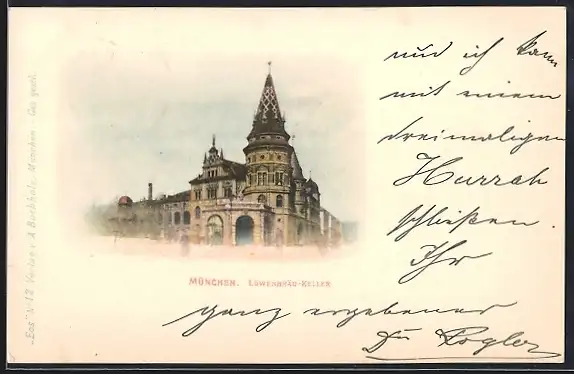 und ich kann
mit einem
dreimaligen
Hurrah
schließen
Ihr
ganz ergebener
Dr Vogler
MÜNCHEN. LÖWENBRÄU-KELLER
"Eos" No 12 Verlag v. A. Buchholz, München - Ges. gesch.